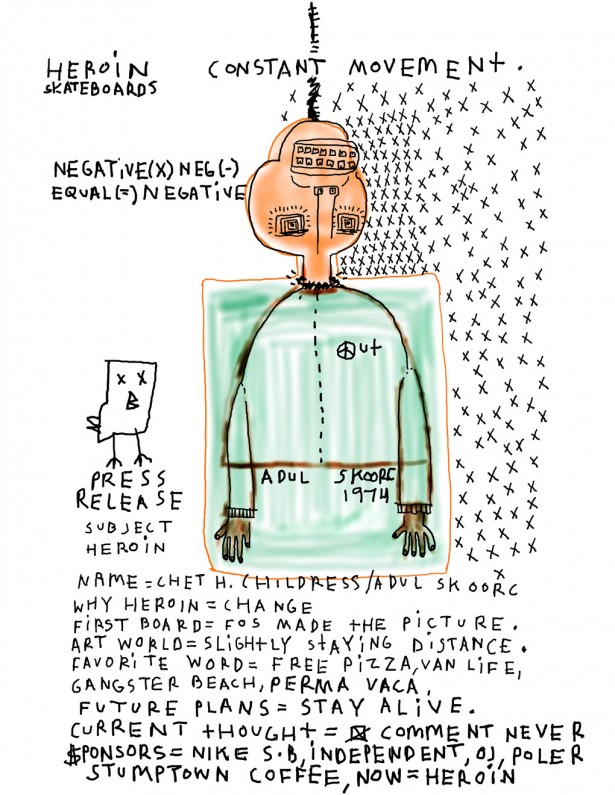 HEROIN
SKATEBOARDS
CONSTANT MOVEMENT.
NEGATIVE(X) NEG(-)
EQUAL(=) NEGATIVE
ut
ADUL SKOORC
1974
B
PRESS
RELEASE
SUBJECT
HEROIN
NAME=CHET H. CHILDRESS/ADUL SKOORC
WHY HEROIN = CHANGE
FIRST BOARD= FOS MADE THE PICTURE.
ART WORLD=SLIGHTLY STAYING DISTANCE.
FAVORITE WORD= FREE PIZZA, VAN LIFE,
GANGSTER BEACH, PERMA VACA,
FUTURE PLANS= STAY ALIVE.
CURRENT THOUGHT = COMMENT NEVER
$PONSORS= NIKE S.B, INDEPENDENT, OJ, POLER
STUMPTOWN COFFEE, NOW=HEROIN